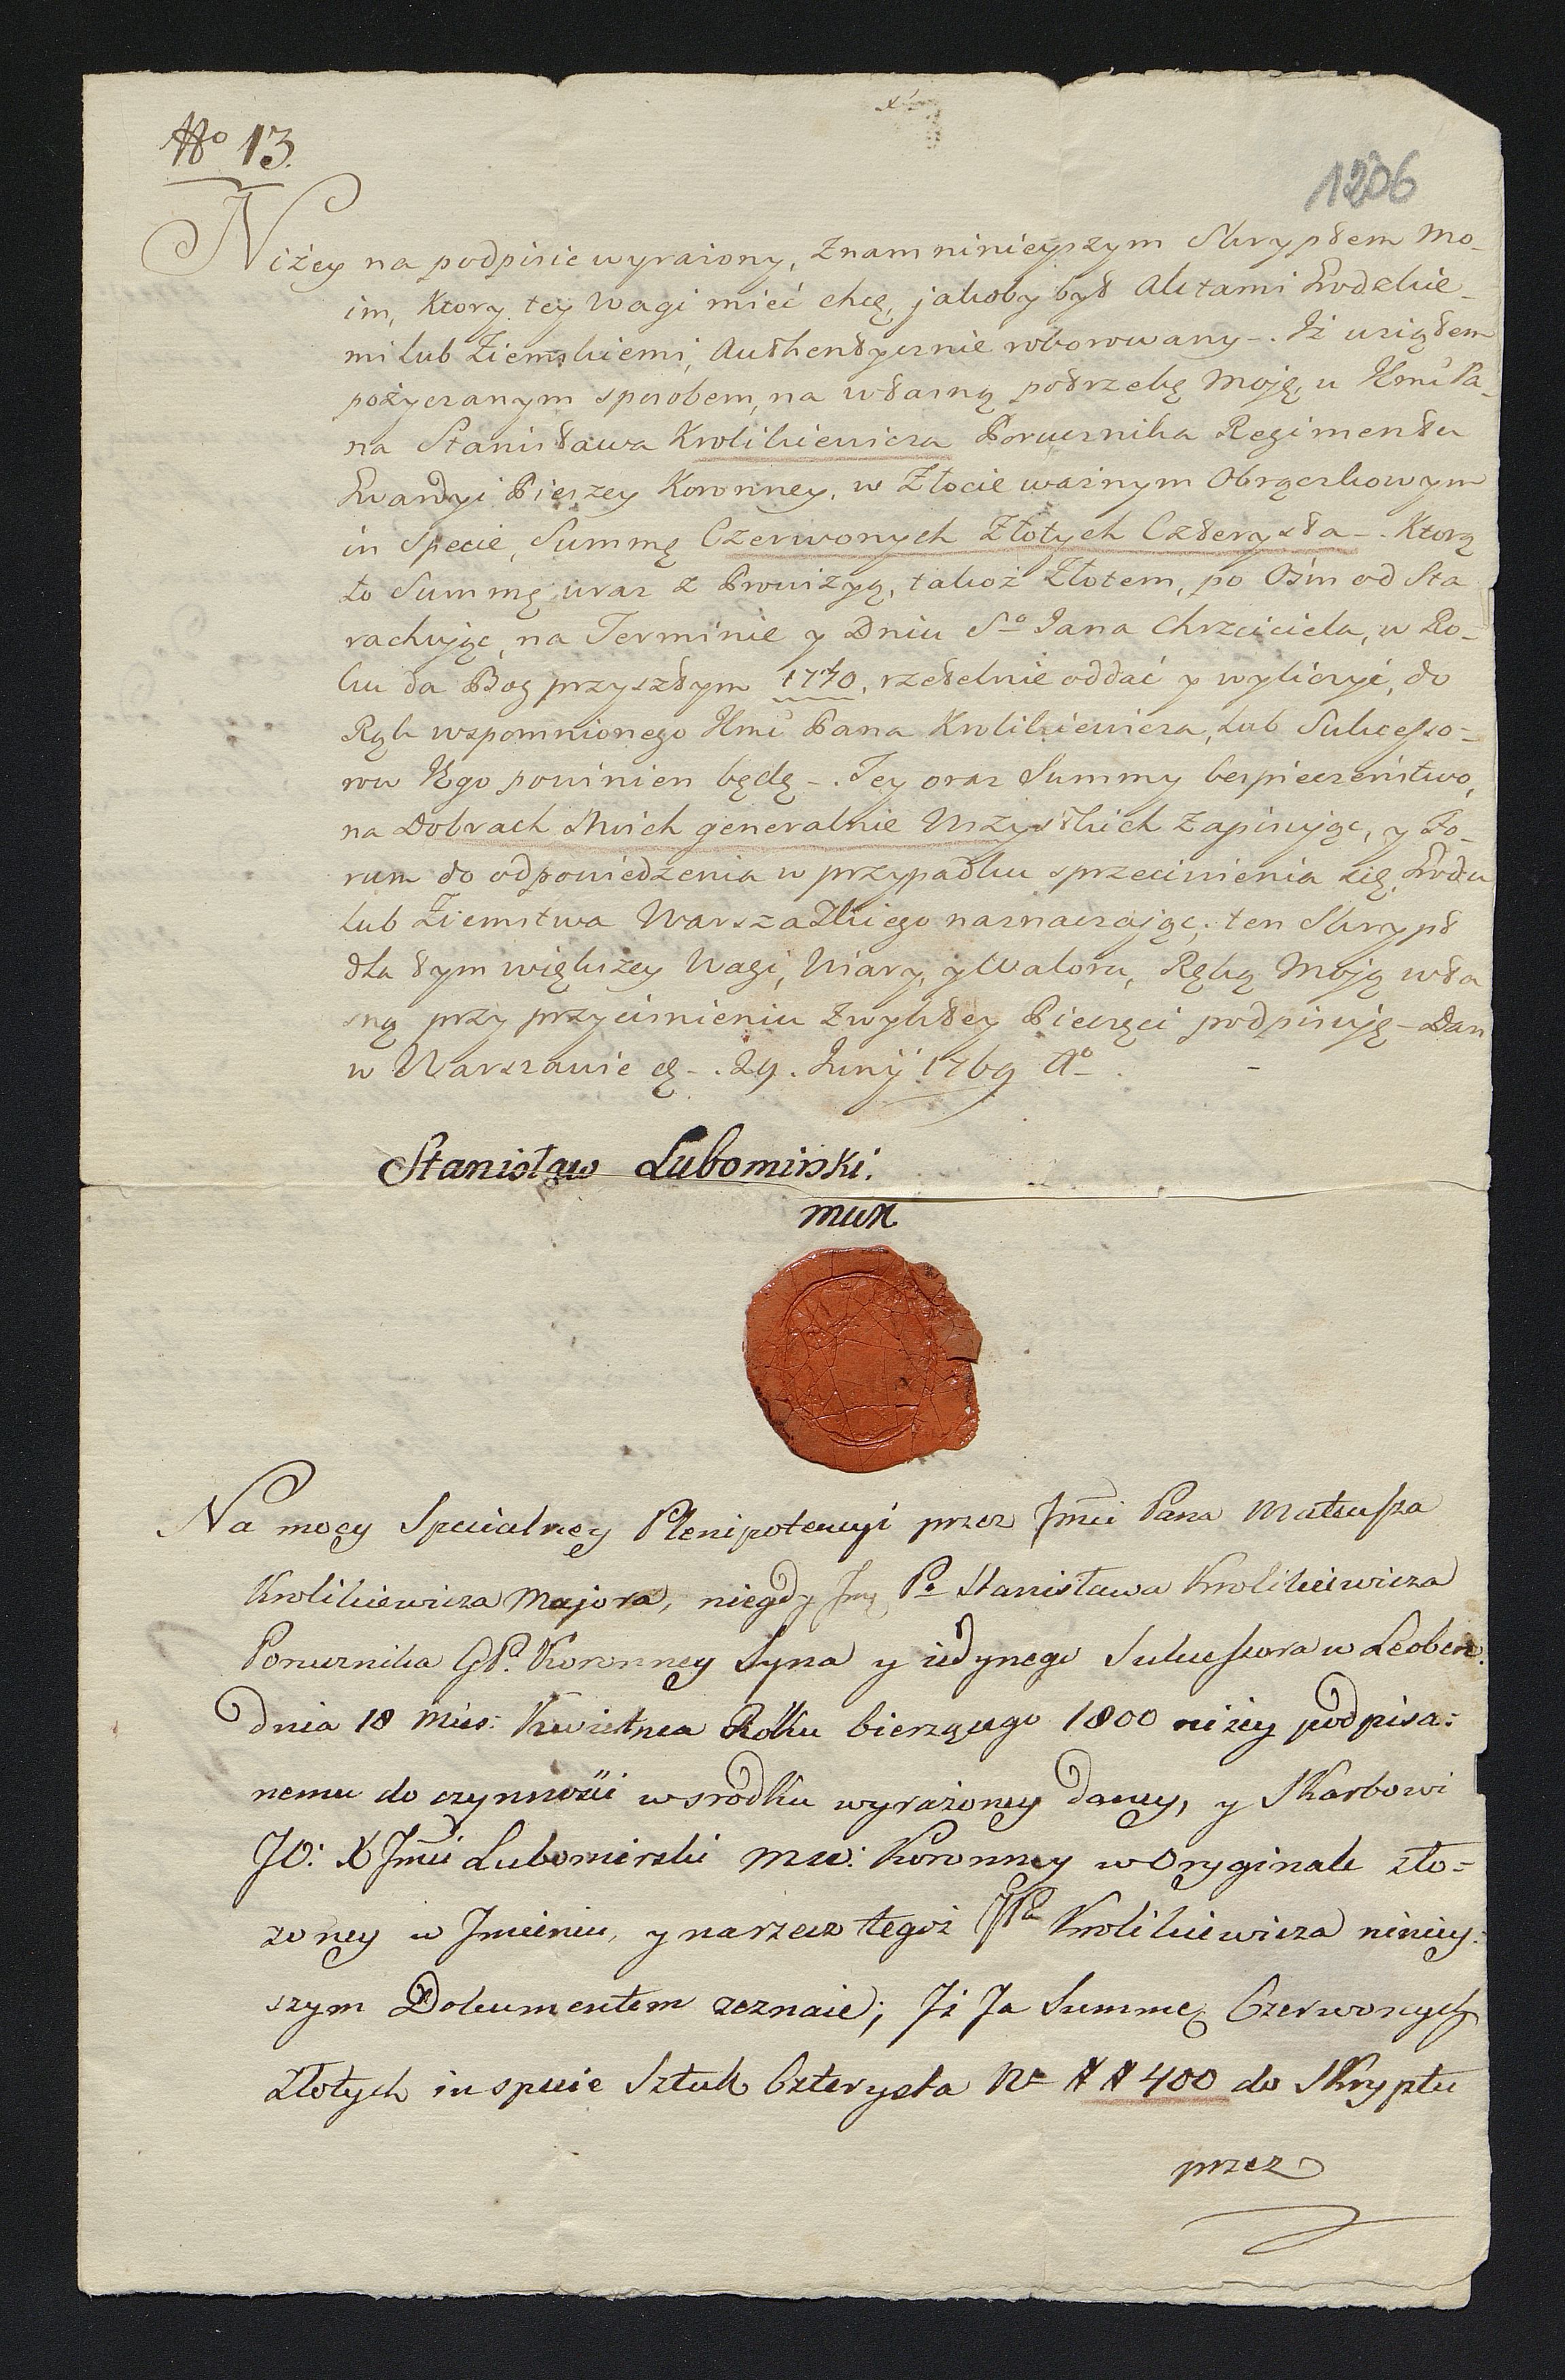 No 13.
1206
Niżey na podpisie wyrażony, Znam ninieyszym Skryptem mo-
im, Ktory tey Wagi mieć chcę, jakoby był Aktami Grodzkie-
mi lub Ziemskiemi, Authentycznie roborowany -. Iż wziąłem
pożyczanym sposobem, na własną potrzebę Moję, u JImci Pa-
na Stanisława Krolikiewicza Porucznika Regimentu
Gwardyi Pieszey Koronney, w Złocie ważnym Obrączkowym
in Specie, Summę Czerwonych Złotych Czterysta -. Ktorą
to Summę wraz z Prowizyą, takoż Złotem, po Ośm od Sta
rachując, na Terminie y Dniu So Jana Chrzciciela, w Ro-
ku da Bog przyszłym 1770, rzetelnie oddać y wyliczyć, do
Rąk wspomnionego JImci Pana Krolikiewicza, lub Sukcesso-
row Jego powinien będę -. Tey oraz Summy bespieczeństwo,
na Dobrach Moich generalnie Wszystkich zapisując, y Fo-
rum do odpowiedzenia w przypadku sprzeciwienia się, Grodu
lub Ziemstwa Warszawskiego naznaczając; ten Skrypt
dla tym większey Wagi, Wiary, y Waloru, Ręką Moją wła
sną przy przyciśnieniu Zwykłey Pieczęci podpisuję - Dan
w Warszawie d. 29. Junÿ 1769 Ao.
Stanisław Lubomirski.
mwk
Na mocy Specialney Plenipotencyi przez Jmci Pana Mateusza
Krolikiewicza Majora, niegdy Jmć Pa Stanisława Krolikiewicza
Porucznika GPd. Koronney Syna y iedynego Sukcessora w Leoben.
Dnia 18 Mies: Kwietnia Roku bierzącego 1800 niżey podpisa:
nemu do czynności wsrodku wyrażoney daney, y Skarbowi
JO: X Jmci Lubomirski MW: Koronney w Oryginale zło=
żoney w Jmieniu, y narzecz tegoż JPa Krolikiewicza niniey:
szym Dokumentem zeznaie; Jż Ja Summę Czerwonych
Złotych in specie Sztuk Czterysta No ## 400 do Skryptu
przez